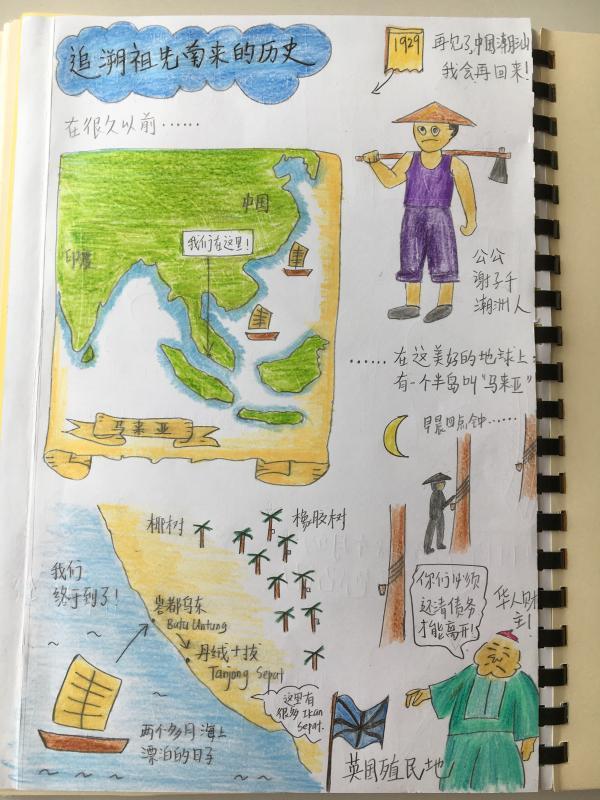 追溯祖先南来的历史
1929
再包了,中国潮汕
我会再回来!
在很久以前......
中国
印度
我们在这里!
马来亚
公公
谢子千
潮洲人
......在这美好的地球上:
有一个半岛叫“马来亚”
早晨四点钟......
椰树
橡胶树
我们
终于到了!
峇都乌东
Batu Untung
丹绒十拔
Tanjong Sepat
这里有
很多Ikan
Sepat.
两个多月海上
漂泊的日子
你们必须
还清债务
才能离开!
华人财
主!
英国殖民地